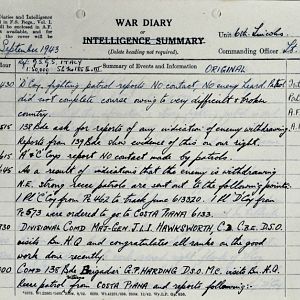 Diaries and Intelligence
in F.S. Regs., Vol. I.
will be enclosed in A.F.
available, and for
the cover will be
WAR DIARY
or
INTELLIGENCE SUMMARY.
(Delete heading not required).
Unit 6th Lincolns.
Commanding Officer Lt.
September 1943
Ref. G.S.G.S. ITALY
Summary of Events and Information
ORIGINAL
430 'D' Coy. fighting patrol reports No contact No enemy heard. Patrol
did not complete course owing to very difficult & broken
country.
515 138 Bde ask for reports of any indication of enemy withdrawing
Reports from 139 Bde show evidence of this on our right.
615 'A' & 'C' Coys report NO contact made by patrols.
645 As a result of indications that the enemy is withdrawing
N.E. strong recce patrols are sent to the following points:
1 Pl 'C' Coy from Pt 462 to track junc 613320. 1 Pl 'D' Coy from
Pt 673 were ordered to go to COSTA PIANA 6133.
730 DIVISIONAL COMD MAJ-GEN J.L.I. HAWKSWORTH, C.B. C.B.E. D.S.O.
visits Bn H.Q. and congratulates all ranks on the good
work done recently.
300 COMD 138 Bde Brigadier G.P. HARDING D.S.O. M.C. visits Bn. H.Q.
Recce patrol from COSTA PIANA and reports following:-